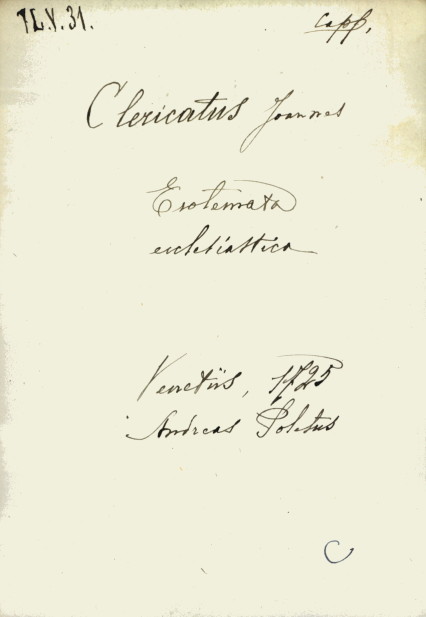 TL.V.31.
capp.
Clericatus Joannes
Erotemata
ecclesiastica
Venetiis, 1725
Andreas Poletus
C